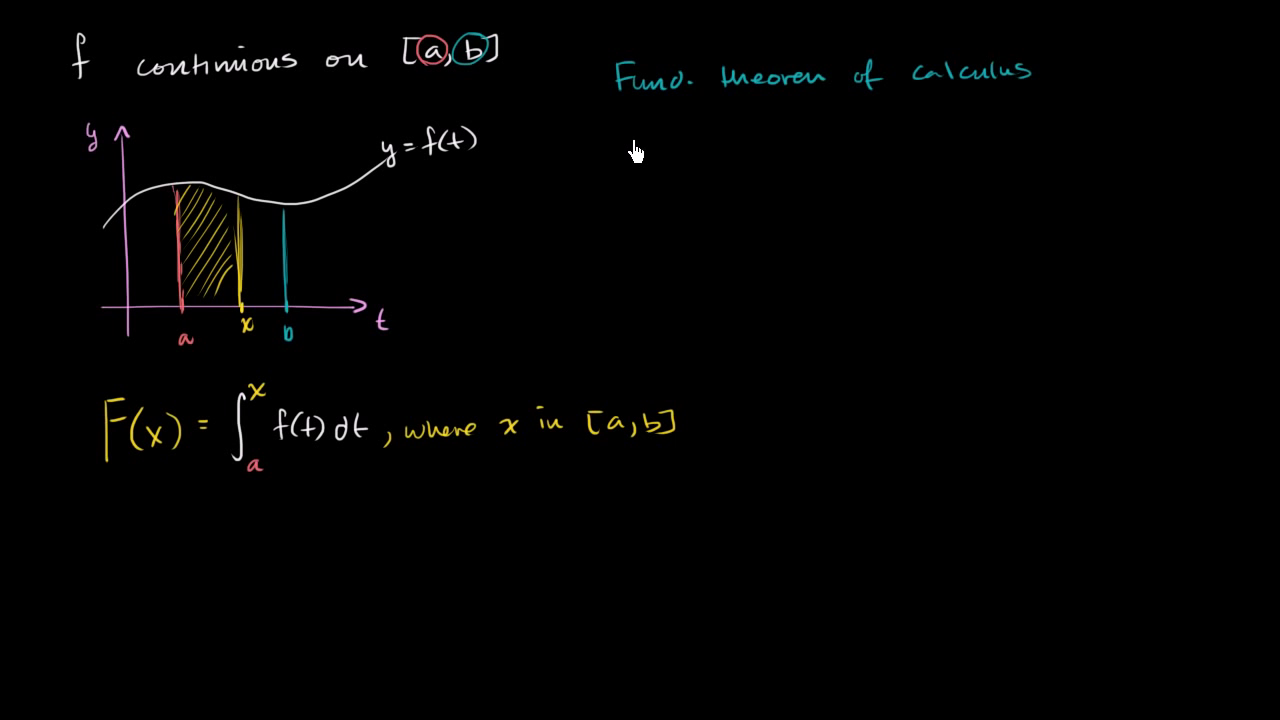 f continuous on [a, b]
Fund. theorem of calculus
y
y = f(t)
t
a
x
b
F(x) = ∫ₐˣ f(t) dt, where x in [a, b]